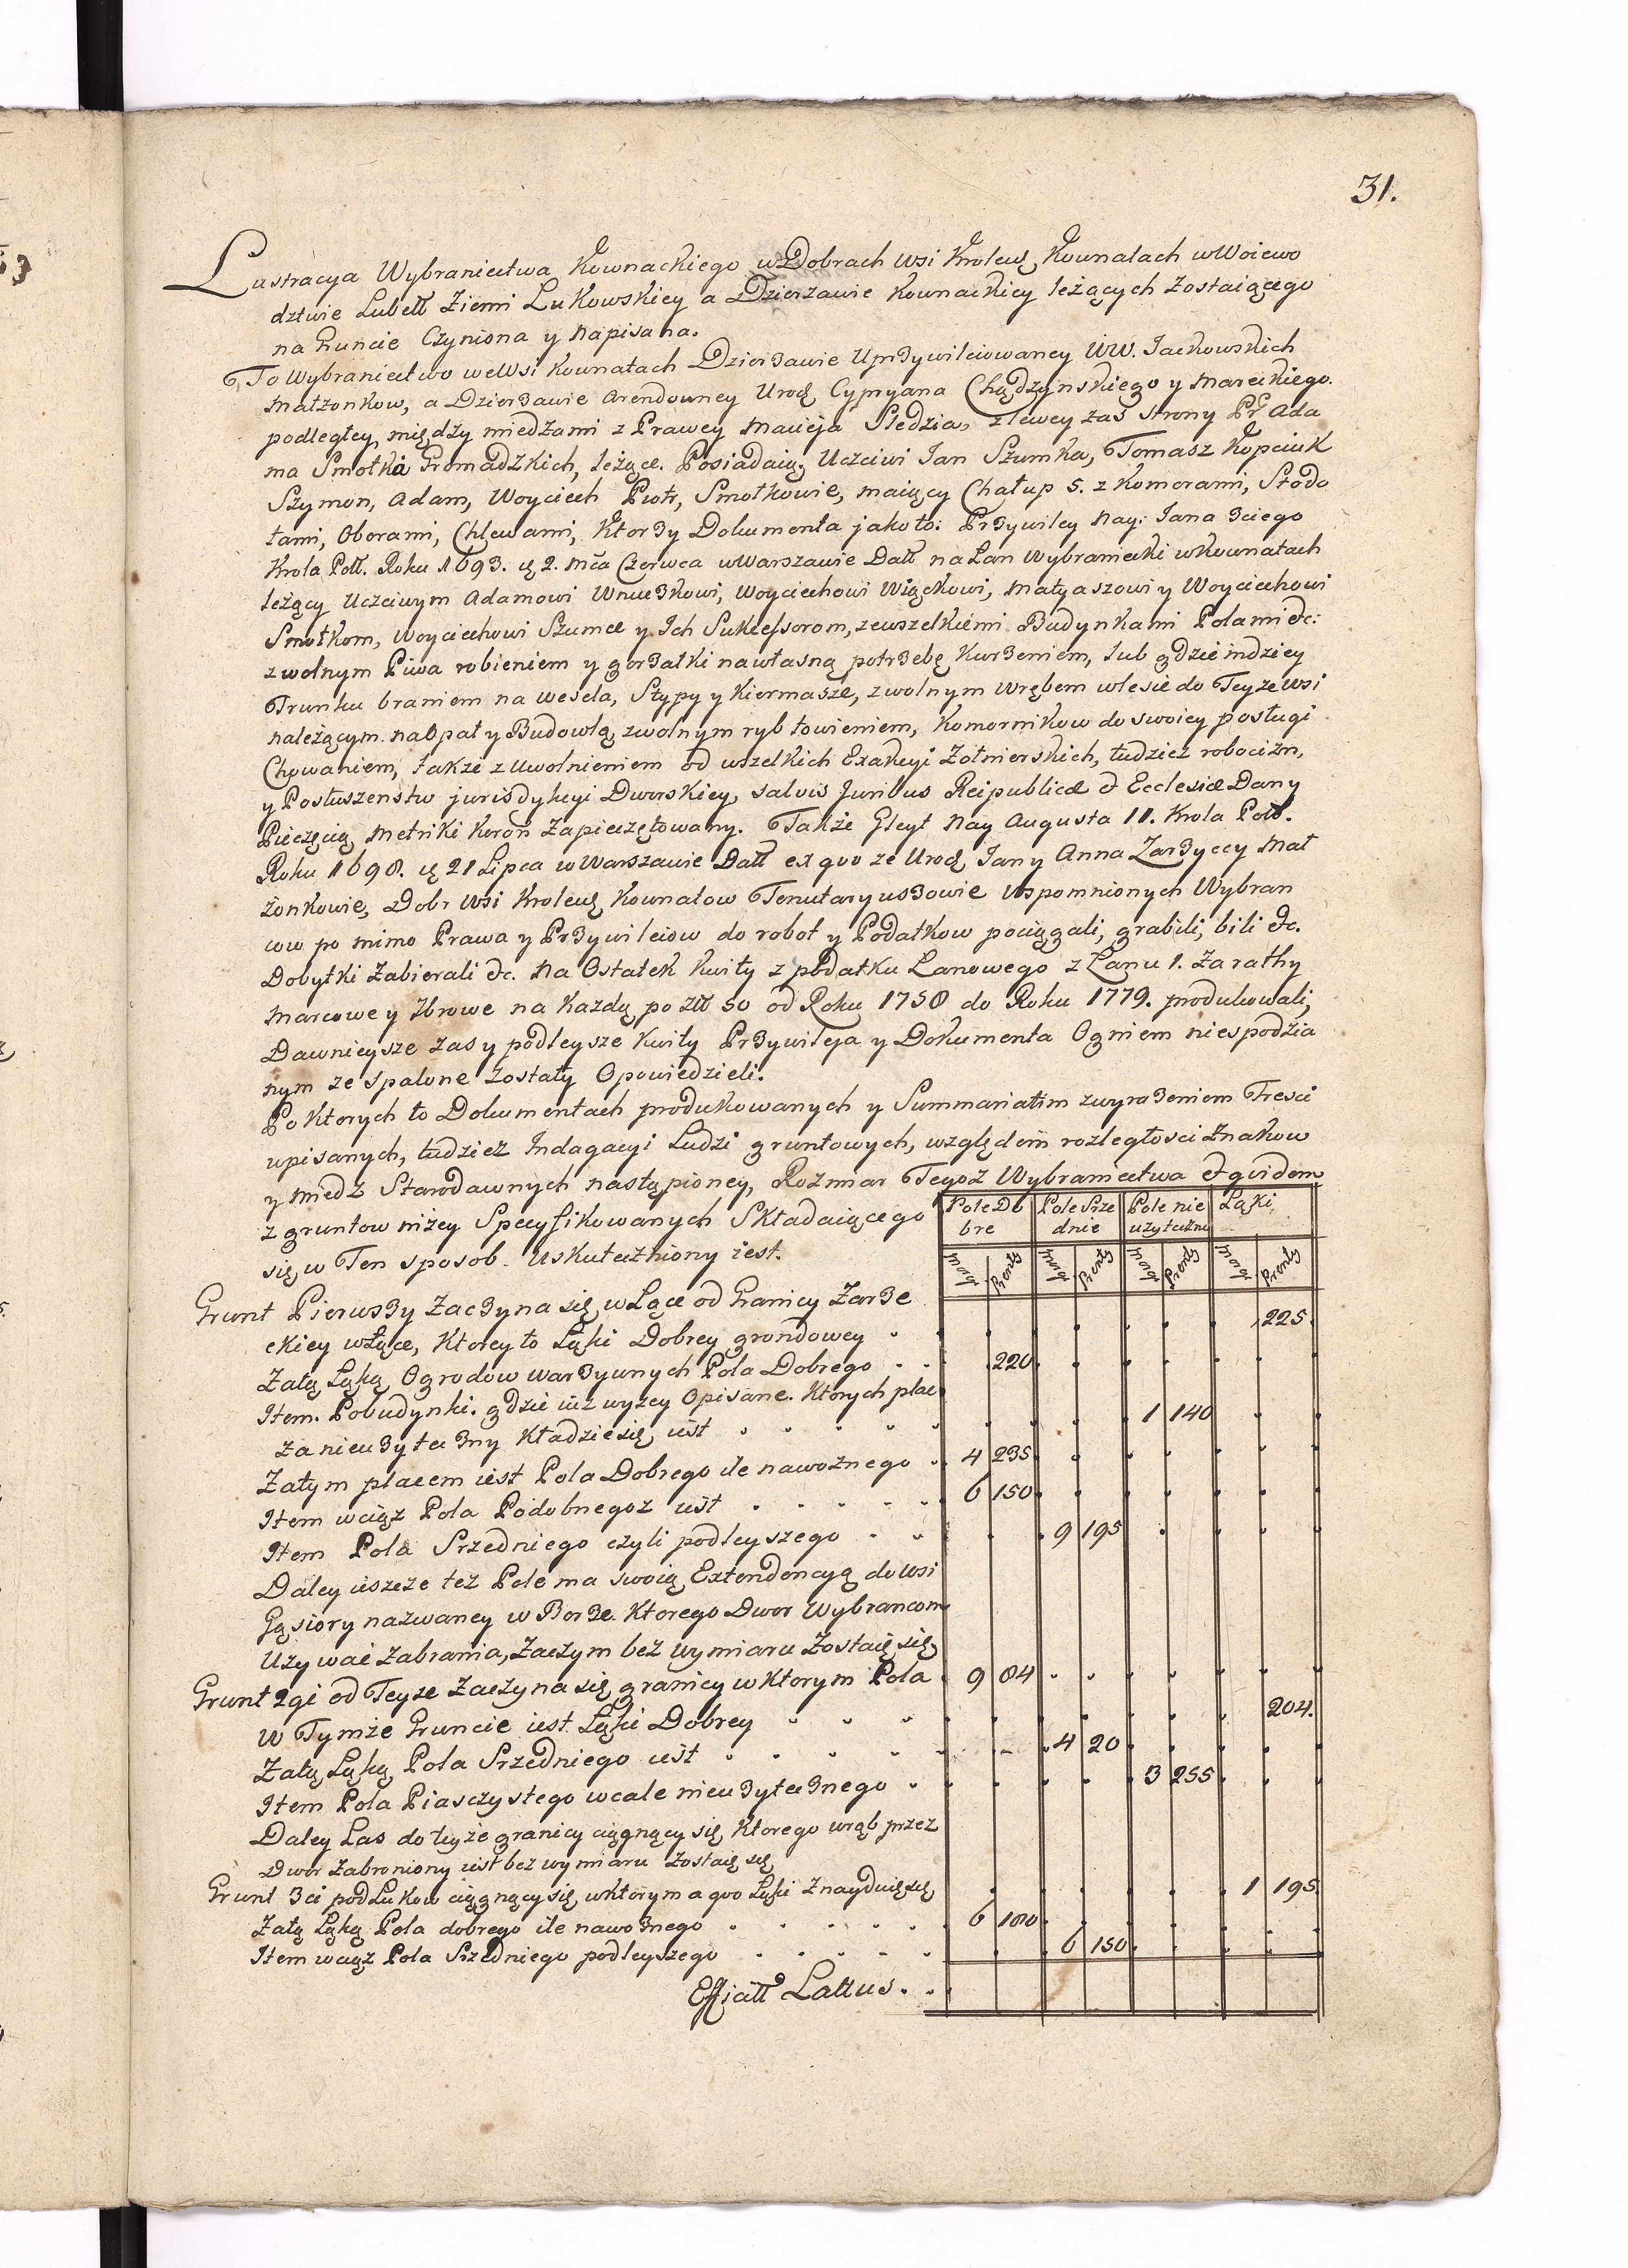 31.
Lustracya Wybraniectwa Kownackiego w Dobrach Wsi Krolews Kownatach w Woiewo
dztwie Lubell Ziemi Lukowskiey a Dzierzawie Kownackiey leżących zostaiącego
na Gruncie Czyniona y napisana.
To Wybraniectwo we Wsi Kownatach Dzier3awie Upr3ywileiowaney WW. Jackowskich
Małzonkow, a Dzier3awie Arendowney Urod Cypryana Chądzynskiego y Mareckiego
podległey, między miedzami z Prawey Macieja Sledzia, z lewey zaś strony Pr Ada
ma Smołka Gromadzkich, leżące. Posiadaią. Uczciwi Jan Szumka, Tomasz Kopciuk
Szymon, Adam, Woyciech Piotr, Smołkowie, maiący Chałup 5. z Komorami, Stodo
łami, Oborami, Chlewami, Ktor3y Dokumenta jako to: Pr3ywiley Nay: Jana 3ciego
Krola Poll. Roku 1693. d 2. mca Czerwca w Warszawie Datt na Łan Wybraniecki w Kownatach
leżący Uczciwym Adamowi Wnuc3kowi, Woyciechowi Wiąckowi, Matyaszowi y Woyciechowi
Smołkom, Woyciechowi Szumce y Ich Sukcessorom, z wszelkiemi Budynkami Polami &c:
z wolnym Piwa robieniem y gor3ałki na własną potr3ebę Kur3eniem, lub gdzie indziey
Trunku braniem na wesela, Stypy y Kiermasze, z wolnym Wrębem w lesie do Teyze Wsi
należącym na Opał y Budowlą, z wolnym ryb łowieniem, Komornikow do swoiey posługi
Chowaniem, także z Uwolnieniem od wszelkich Exakcyi Żołnierskich, tudziez robocizn,
y Posłuszenstw jurisdykcyi Dworskiey, salvis Juribus Reipublicæ & Ecclesiæ Dany
Pieczęcią Metriki Koron Zapieczętowany. Także Gleyt Nay Augusta II. Krola Poll.
Roku 1698. d 21 Lipca w Warszawie Datt ex quo ze Urod Jan y Anna Zar3yccy Mał
żonkowie, Dobr Wsi Krolews Kownatow Tenutaryus3owie Wspomnionych Wybran
cow po mimo Prawa y Pr3ywileiow do robot y Podatkow pociągali, grabili, bili &c.
Dobytki Zabierali &c. Na Ostatek Kwity z podatku Łanowego z Łanu 1. Za rathy
Marcowe y 7browe na Kazdą po Złł 50 od Roku 1758 do Roku 1779. produkowali,
Dawnieysze zas y podleysze Kwity Pr3ywileja y Dokumenta Ogniem niespodzia
nym ze spalone zostały Opowiedzieli.
Po Ktorych to Dokumentach produkowanych y Summariatim z wyra3eniem Tresci
wpisanych, tudziez Indagacyi Ludzi gruntowych, względem rozległosci Znakow
y Miedz Starodawnych nastąpioney, Rozmiar Tegoż Wybraniectwa & quidem
z gruntow niżey Specyfikowanych Składaiącego
się w Ten sposob Uskuteczniony iest.
Pole Do bre | Pole Srze dnie | Pole nie uzyteczne | Łąki
Morgi | Pręty | Morgi | Pręty | Morgi | Pręty | Morgi | Pręty
Grunt Pierws3y Zac3yna się w Łące od Granicy Zar3e
ckiey w Łące, Ktorey to Łąki Dobrey grondowey 225.
Zatą Łąką Ogrodow war3ywnych Pola Dobrego 220
Item. Pobudynki. gdzie iuż wyzey Opisane. Ktorych plac
za nieu3ytec3ny Kładzie się iest 1 140
Zatym placem iest Pola Dobrego ile nawoznego 4 235
Item wciąz Pola Podobnegoz iest 6 150
Item Pola Srzedniego czyli podleyszego 9 195
Daley ieszcze też Pole ma swoią Extendencyą do Wsi
Gąsiory nazwaney w Bor3e. Ktorego Dwor Wybrancom
Uzywać Zabrania, Zaczym bez Wymiaru Zostaię się
Grunt 2gi od Teyze Zaczyna się granicy w Ktorym Pola 9 84
W Tymże Gruncie iest. Łąki Dobrey 204.
Zatą Łąką Pola Srzedniego iest 4 20
Item Pola Piasczystego wcale nieu3ytec3nego 3 255
Daley Las do teyże granicy ciągnący się Ktorego wrąb przez
Dwor Zabroniony iest bez wymiaru zostaię się
Grunt 3ci pod Łukow ciągnący się w ktorym a quo Łąki Znayduię się 1 195
Zatą Łąką Pola dobrego ile nawo3nego 6 100
Item wciąz Pola Srzedniego podleyszego 6 150
Efficiatt Lattus.